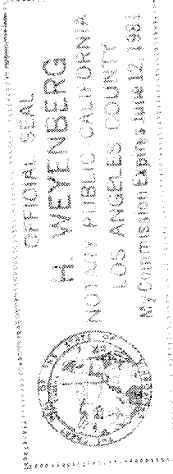 OFFICIAL SEAL
H. WEYENBERG
NOTARY PUBLIC CALIFORNIA
LOS ANGELES COUNTY
My Commission Expires June 12, 1981